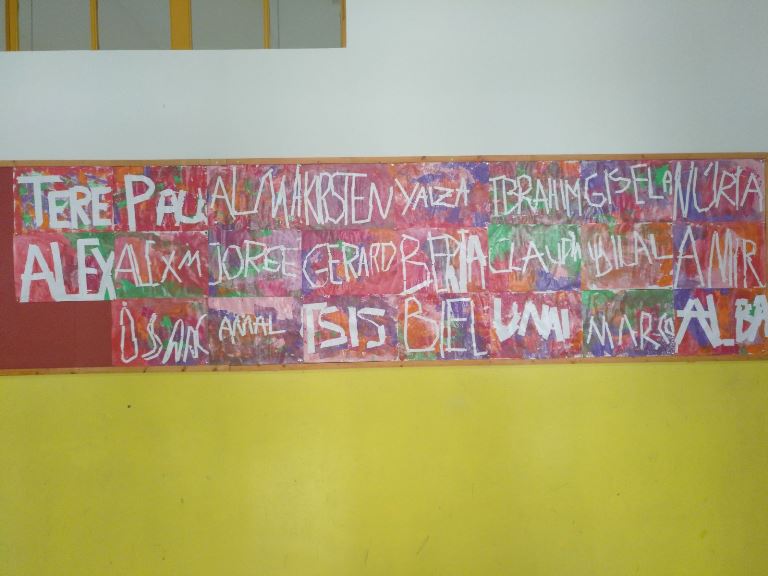 TERE PAU ALMA KIRSTEN YAIZA IBRAHIM GISELA NÚRIA
ALEX ALEX M JORGE GERARD BERTA CLAUDIA BILAL AMIR
AMAL ISIS BEL UNAI MARC ALBA